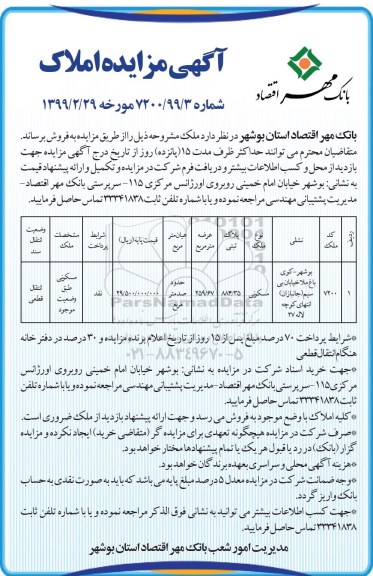 بانک مهر اقتصاد
آگهی مزایده املاک
شماره ۷۲۰۰/۹۹/۳ مورخه ۱۳۹۹/۲/۲۹
بانک مهر اقتصاد استان بوشهر در نظر دارد ملک مشروحه ذیل را از طریق مزایده به فروش برساند.
متقاضیان محترم می توانند حداکثر ظرف مدت ۱۵ (پانزده) روز از تاریخ درج آگهی مزایده جهت
بازدید از محل و کسب اطلاعات بیشتر و دریافت فرم شرکت در مزایده و تکمیل و ارائه پیشنهاد قیمت
به نشانی: بوشهر خیابان امام خمینی روبروی اورژانس مرکزی ۱۱۵- سرپرستی بانک مهر اقتصاد-
مدیریت پشتیبانی مهندسی مراجعه نموده و یا با شماره تلفن ثابت ۳۳۳۴۱۸۳۸ تماس حاصل فرمایید.
ردیف | کد ملک | نشانی | نوع ملک | پلاک ثبتی | عرصه مترمربع | اعیان متر مربع | قیمت پایه (ریال) | شرایط پرداخت | مشخصات ملک | وضعیت انتقال سند
۱ | ۷۲۰۰ | بوشهر - کوی باغ ملا خیابان بی سیم (جانبازان) انتهای کوچه لاله ۲۷ | مسکونی | ۸۸۴/۳۵ | ۲۵۹/۶۷ | حدود صدمتر مربع | ۲۹/۵۰۰/۰۰۰/۰۰۰ | نقد | مسکونی طبق وضعیت موجود | انتقال قطعی
ParsNamadData
۰۲۱-۸۸۳۴۹۶۷۰-۵
*شرایط پرداخت ۷۰ درصد مبلغ پس از ۱۵ روز از تاریخ اعلام برنده مزایده و ۳۰ درصد در دفترخانه
هنگام انتقال قطعی
*جهت خرید اسناد شرکت در مزایده به نشانی: بوشهر خیابان امام خمینی روبروی اورژانس
مرکزی ۱۱۵- سرپرستی بانک مهر اقتصاد- مدیریت پشتیبانی مهندسی مراجعه نموده و یا با شماره تلفن
ثابت ۳۳۳۴۱۸۳۸ تماس حاصل فرمایید.
*کلیه املاک با وضع موجود به فروش می رسد و جهت ارائه پیشنهاد بازدید از ملک ضروری است.
*صرف شرکت در مزایده هیچگونه تعهدی برای مزایده گر (متقاضی خرید) ایجاد نکرده و مزایده
گزار (بانک) در رد یا قبول هر یک یا تمام پیشنهادها مختار خواهد بود.
*هزینه آگهی محلی و سراسری بعهده برندگان خواهد بود.
*وجه ضمانت شرکت در مزایده معدل ۵ درصد مبلغ پایه می باشد که باید به صورت نقدی به حساب
بانک واریز گردد.
*جهت کسب اطلاعات بیشتر می توانید به نشانی فوق الذکر مراجعه نموده و یا با شماره تلفن ثابت
۳۳۳۴۱۸۳۸ تماس حاصل فرمایید.
مدیریت امور شعب بانک مهر اقتصاد استان بوشهر